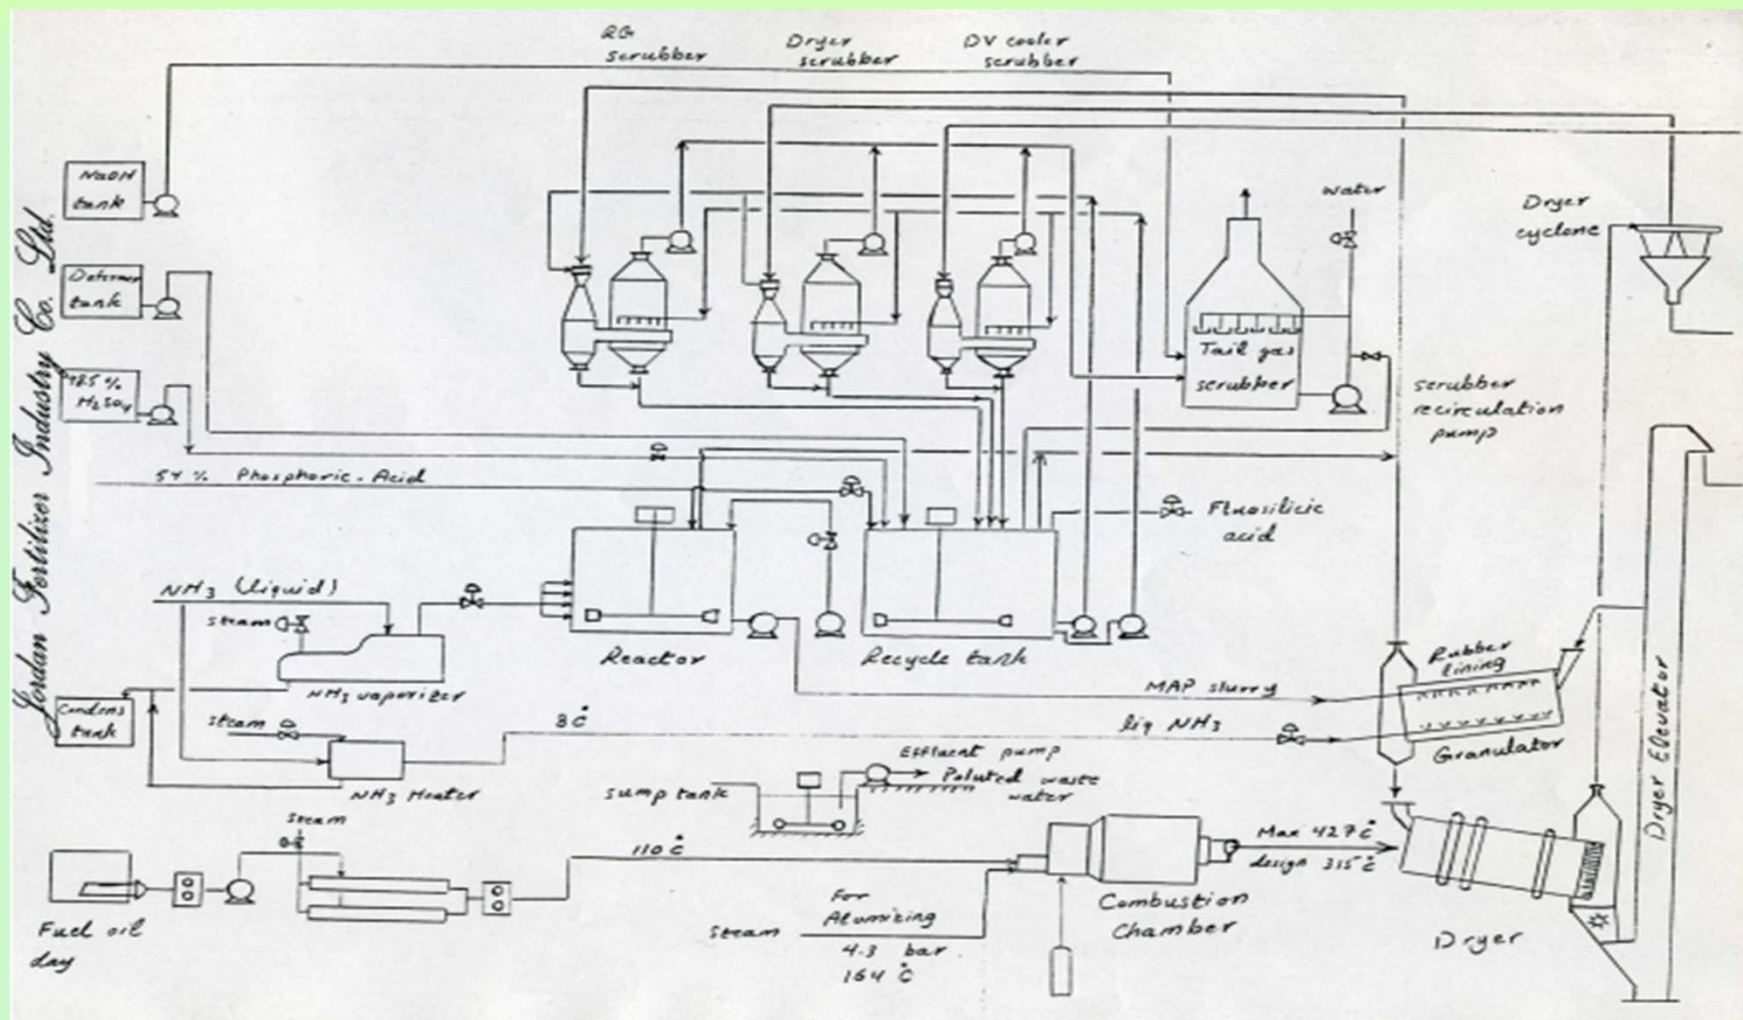 RG
scrubber
Dryer
scrubber
DV cooler
scrubber
NaOH
tank
Defoamer
tank
98.5 %
H2SO4
Jordan Fertilizer Industry Co. Ltd.
water
Dryer
cyclone
Tail gas
scrubber
scrubber
recirculation
pump
54 % Phosphoric-Acid
Fluosilicic
acid
NH3 (liquid)
steam
Reactor
Recycle tank
NH3 vaporizer
Condens
tank
steam
8°C
NH3 Heater
MAP slurry
liq NH3
Rubber
lining
Granulator
Dryer Elevator
sump tank
Effluent pump
Poluted waste
water
steam
110°C
Max 427°C
design 315°C
Fuel oil
day
For
Atomizing
steam
4.3 bar
164°C
Combustion
Chamber
Dryer